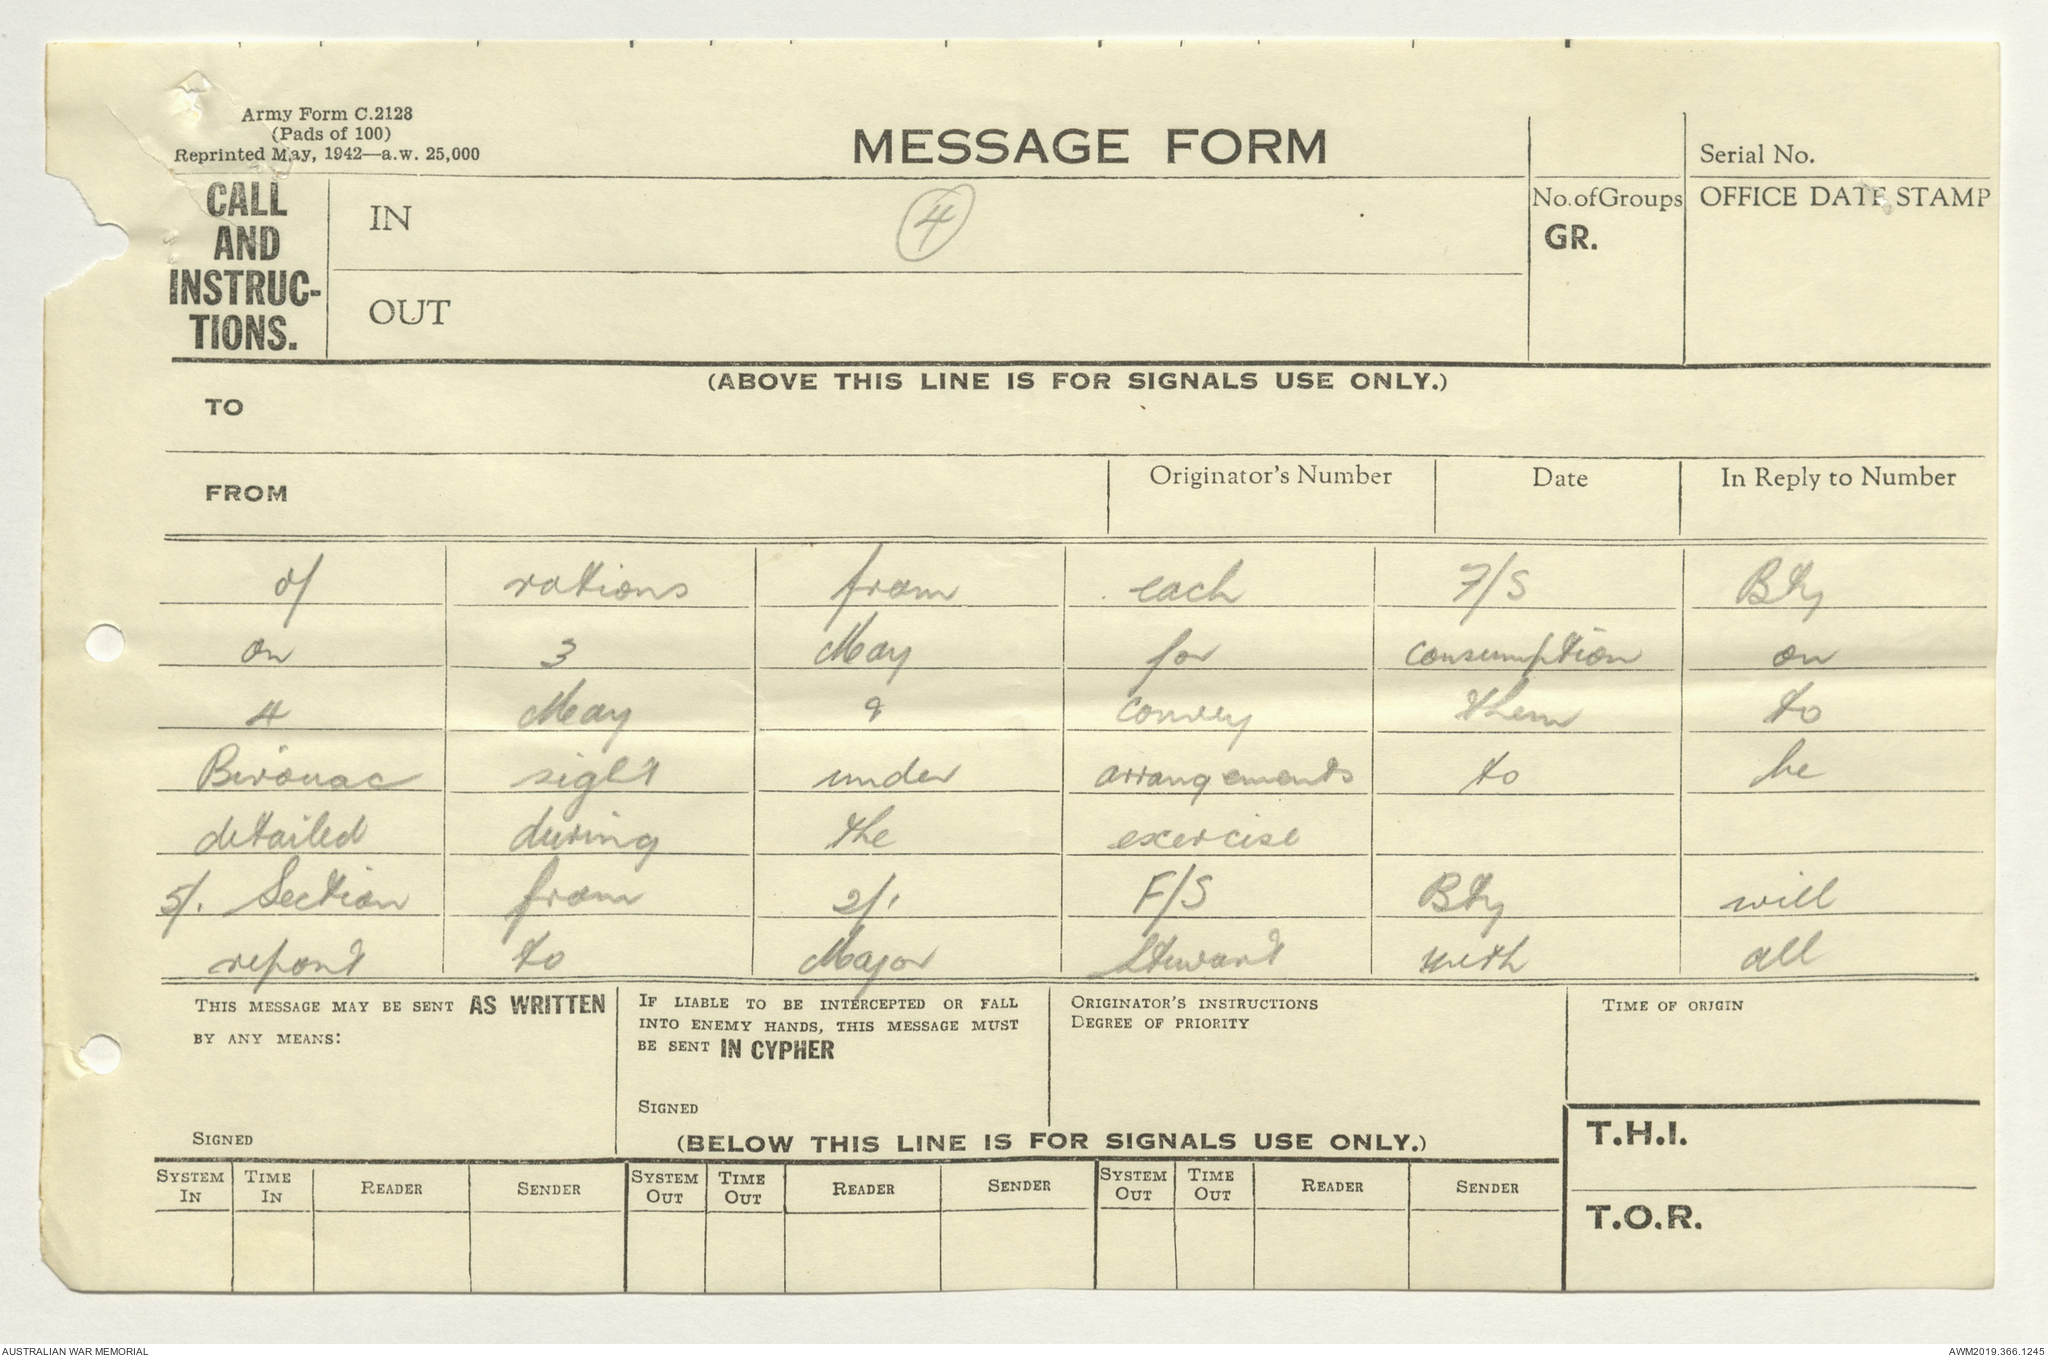 Army Form C.2128
(Pads of 100)
Reprinted May, 1942—a.w. 25,000
MESSAGE FORM
Serial No.
CALL AND INSTRUC-TIONS.
IN
4
No. of Groups
GR.
OFFICE DATE STAMP
OUT
(ABOVE THIS LINE IS FOR SIGNALS USE ONLY.)
TO
FROM
Originator's Number
Date
In Reply to Number
of rations from each F/S Bty
on 3 May for consumption on
4 May & convey them to
Bivouac sight under arrangements to be
detailed during the exercise
5/. Section from 2/1 F/S Bty will
report to Major Stewart with all
THIS MESSAGE MAY BE SENT AS WRITTEN
BY ANY MEANS:
SIGNED
IF LIABLE TO BE INTERCEPTED OR FALL
INTO ENEMY HANDS, THIS MESSAGE MUST
BE SENT IN CYPHER
SIGNED
ORIGINATOR'S INSTRUCTIONS
DEGREE OF PRIORITY
TIME OF ORIGIN
(BELOW THIS LINE IS FOR SIGNALS USE ONLY.)
T.H.I.
T.O.R.
SYSTEM IN
TIME IN
READER
SENDER
SYSTEM OUT
TIME OUT
READER
SENDER
SYSTEM OUT
TIME OUT
READER
SENDER
AUSTRALIAN WAR MEMORIAL
AWM2019.366.1245